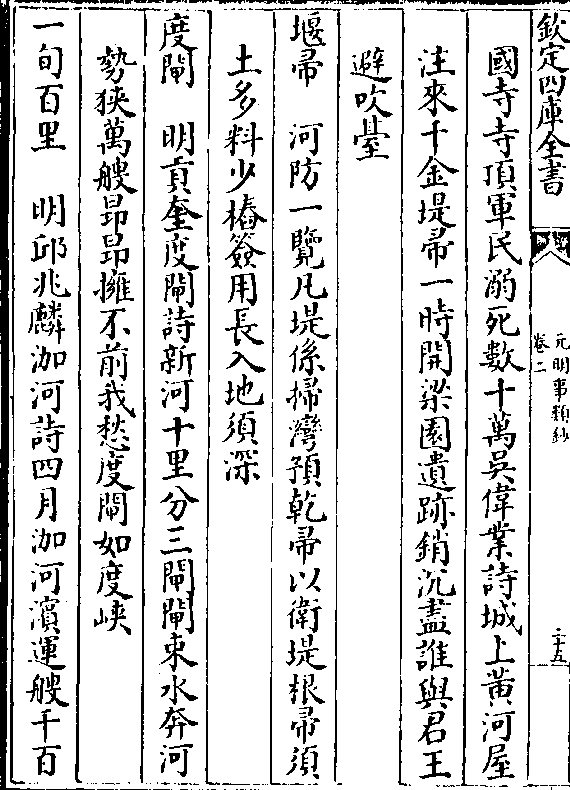 欽定四庫全書
元明事類鈔
卷二
二十五
國寺寺頂軍民溺死數十萬吳偉業詩城上黃河屋
注來千金堤帚一時開梁園遺跡銷沉盡誰與君王
避吹臺
堰帚　河防一覽凡堤係掃灣預乾帚以衛堤根帚須
土多料少樁簽用長入地須深
度閘　明貢奎度閘詩新河十里分三閘閘束水奔河
勢狹萬艘昻昻擁不前我愁度閘如度峽
一旬百里　明邱兆麟泇河詩四月泇河濱運艘千百